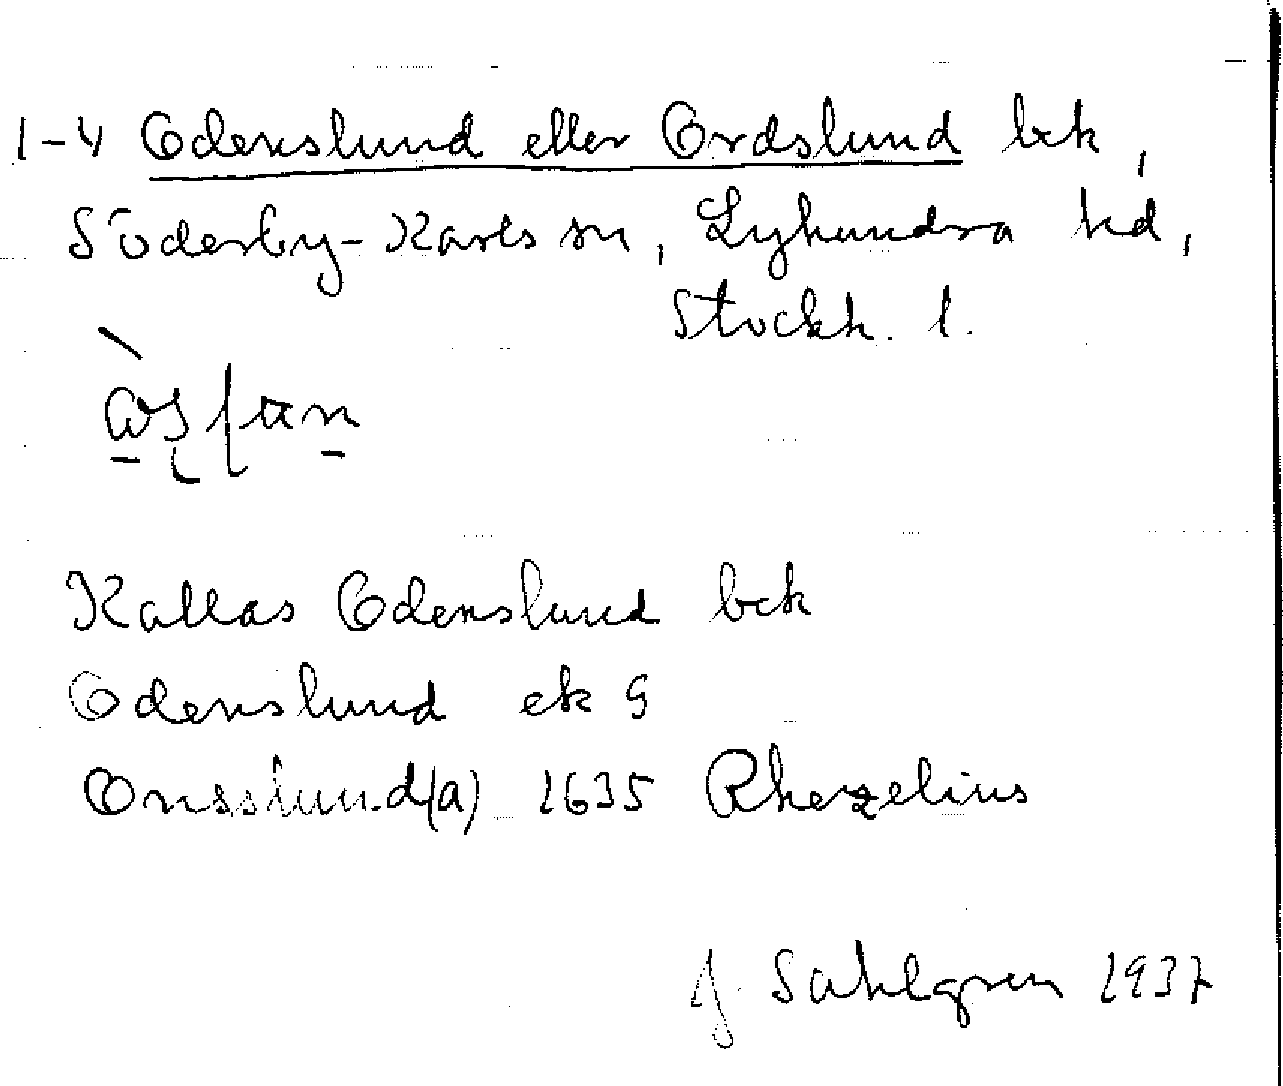 1-4 Odenslund eller Ordslund bck,
Söderby-Karls sn, Lyhundra hd,
Stockh. l.
Kallas Odenslund bck
Odenslund ek 9
Onsslund(a) 1635 Rhezelius
J Sahlgren 1937